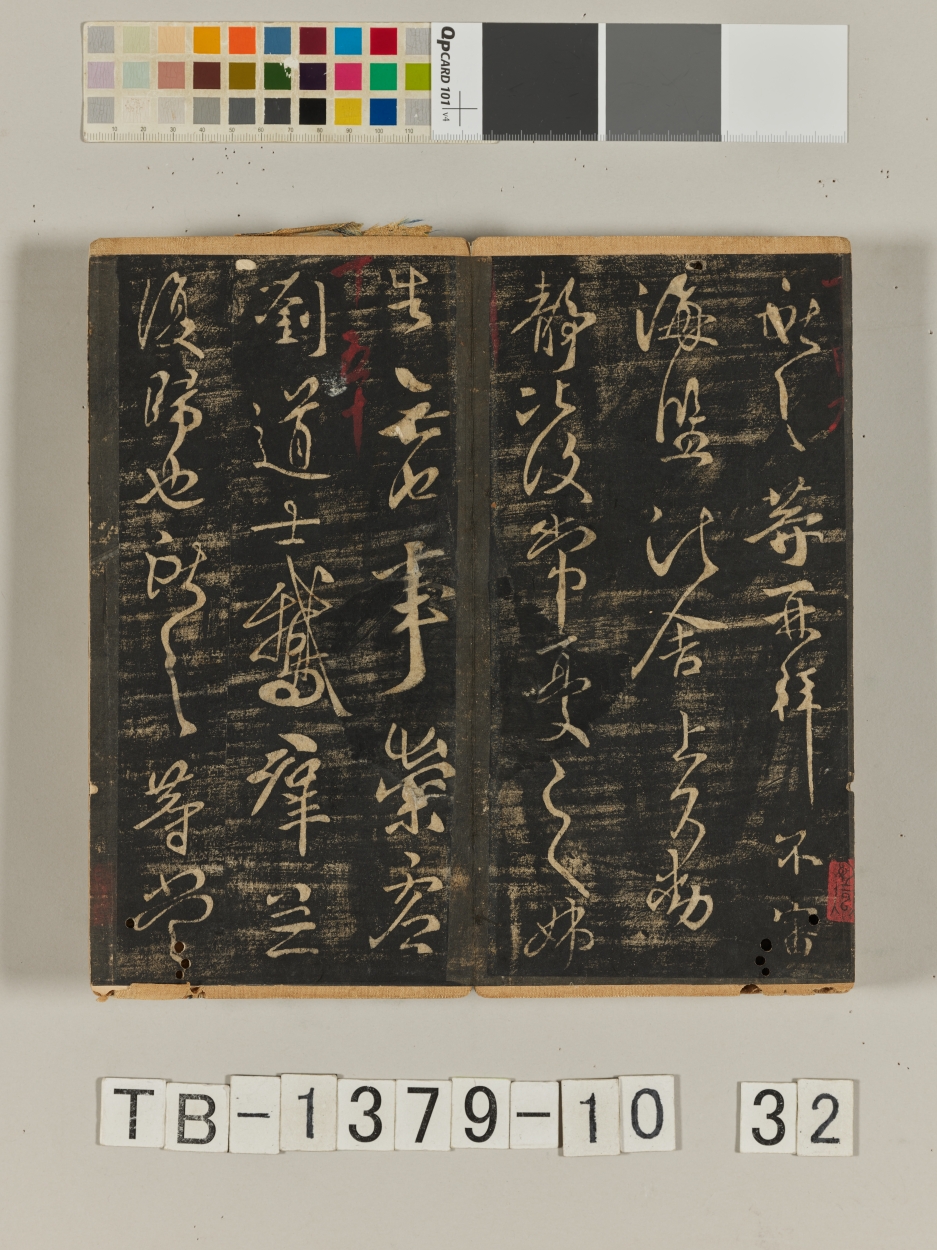 獻之等再拜不審
海鹽諸舍上下動
靜比復常憂之姊
告無他事崇虛
劉道士鵝羣並
復歸也獻之等當
QPCARD 101 v4
10 20 30 40 50 60 70 80 90 100 110
TB-1379-10 32